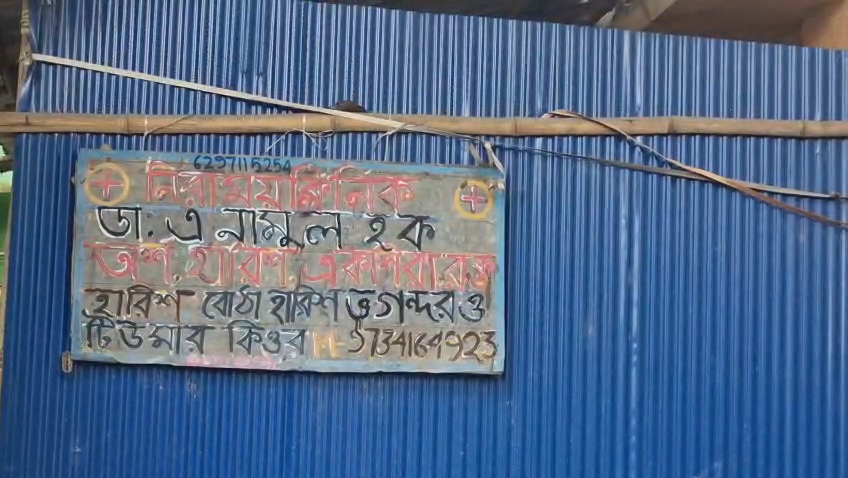 6297115254
নিরাময় ক্লিনিক
ডা. এ নামুল হক
অর্শ. হারিশ. একশিরা. রক্ত
হারিশ বোঠা হারিশ ভগন্দর ও
টিউমার কিওর M- 9734164923